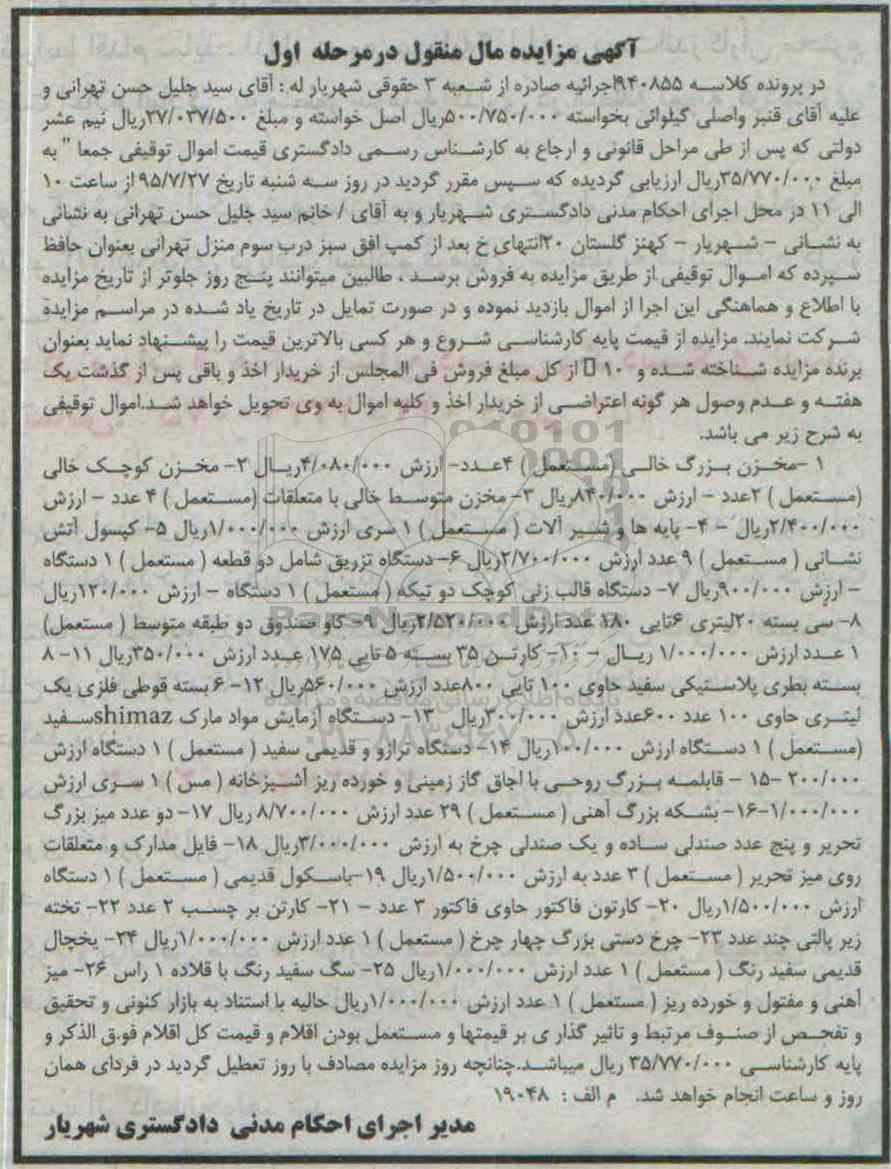 آگهی مزایده مال منقول درمرحله اول
در پرونده کلاسه ۹۴۰۸۵۵اجرائیه صادره از شعبه ۳ حقوقی شهریار له : آقای سید جلیل حسن تهرانی و
علیه آقای قنبر واصلی گیلوائی بخواسته ۵۰۰/۷۵۰/۰۰۰ریال اصل خواسته و مبلغ ۲۷/۰۳۷/۵۰۰ریال نیم عشر
دولتی که پس از طی مراحل قانونی و ارجاع به کارشناس رسمی دادگستری قیمت اموال توقیفی جمعا " به
مبلغ ۳۵/۷۷۰/۰۰۰ریال ارزیابی گردیده که سپس مقرر گردید در روز سه شنبه تاریخ ۹۵/۷/۲۷ از ساعت ۱۰
الی ۱۱ در محل اجرای احکام مدنی دادگستری شهریار و به آقای / خانم سید جلیل حسن تهرانی به نشانی
به نشانی – شهریار – کهنز گلستان ۲۰انتهای خ بعد از کمپ افق سبز درب سوم منزل تهرانی بعنوان حافظ
سپرده که اموال توقیفی از طریق مزایده به فروش برسد . طالبین میتوانند پنج روز جلوتر از تاریخ مزایده
با اطلاع و هماهنگی این اجرا از اموال بازدید نموده و در صورت تمایل در تاریخ یاد شده در مراسم مزایده
شرکت نمایند. مزایده از قیمت پایه کارشناسی شروع و هر کسی بالاترین قیمت را پیشنهاد نماید بعنوان
برنده مزایده شناخته شده و ۱۰ از کل مبلغ فروش فی المجلس از خریدار اخذ و باقی پس از گذشت یک
هفته و عدم وصول هر گونه اعتراضی از خریدار اخذ و کلیه اموال به وی تحویل خواهد شد.اموال توقیفی
به شرح زیر می باشد.
۱ –مخزن بزرگ خالی (مستعمل ) ۴عدد- ارزش ۴/۰۸۰/۰۰۰ریال ۲- مخزن کوچک خالی
(مستعمل ) ۲عدد – ارزش ۸۴۰/۰۰۰ریال ۳- مخزن متوسط خالی با متعلقات (مستعمل ) ۴ عدد – ارزش
۲/۴۰۰/۰۰۰ریال – ۴- پایه ها و شیر آلات ( مستعمل ) ۱ سری ارزش ۱/۰۰۰/۰۰۰ریال ۵- کپسول آتش
نشانی ( مستعمل ) ۹ عدد ارزش ۲/۷۰۰/۰۰۰ریال ۶- دستگاه تزریق شامل دو قطعه ( مستعمل ) ۱ دستگاه
– ارزش ۹۰۰/۰۰۰ریال ۷- دستگاه قالب زنی کوچک دو تیکه ( مستعمل ) ۱ دستگاه – ارزش ۱۲۰/۰۰۰ریال
۸- سی بسته ۲۰لیتری ۶تایی ۱۸۰ عدد ارزش ۲/۵۲۰/۰۰۰ریال ۹- گاو صندوق دو طبقه متوسط ( مستعمل)
۱ عدد ارزش ۱/۰۰۰/۰۰۰ ریال – ۱۰- کارتن ۳۵ بسته ۵ تایی ۱۷۵ عدد ارزش ۳۵۰/۰۰۰ریال ۱۱- ۸
بسته بطری پلاستیکی سفید حاوی ۱۰۰ تایی ۸۰۰عدد ارزش ۵۶۰/۰۰۰ریال ۱۲- ۶ بسته قوطی فلزی یک
لیتری حاوی ۱۰۰ عدد ۶۰۰عدد ارزش ۳۰۰/۰۰۰ریال ۱۳- دستگاه آزمایش مواد مارک shimazسفید
(مستعمل ) ۱ دستگاه ارزش ۱۰۰/۰۰۰ریال ۱۴- دستگاه ترازو و قدیمی سفید ( مستعمل ) ۱ دستگاه ارزش
۲۰۰/۰۰۰ –۱۵ – قابلمه بزرگ روحی با اجاق گاز زمینی و خورده ریز آشپزخانه ( مس ) ۱ سری ارزش
۱/۰۰۰/۰۰۰-۱۶- بشکه بزرگ آهنی ( مستعمل ) ۲۹ عدد ارزش ۸/۷۰۰/۰۰۰ ریال ۱۷- دو عدد میز بزرگ
تحریر و پنج عدد صندلی ساده و یک صندلی چرخ به ارزش ۳/۰۰۰/۰۰۰ریال ۱۸- فایل مدارک و متعلقات
روی میز تحریر ( مستعمل ) ۳ عدد به ارزش ۱/۵۰۰/۰۰۰ریال ۱۹-باسکول قدیمی ( مستعمل ) ۱ دستگاه
ارزش ۱/۵۰۰/۰۰۰ریال ۲۰- کارتون فاکتور حاوی فاکتور ۳ عدد – ۲۱- کارتن بر چسب ۲ عدد ۲۲- تخته
زیر پالتی چند عدد ۲۳- چرخ دستی بزرگ چهار چرخ ( مستعمل ) ۱ عدد ارزش ۱/۰۰۰/۰۰۰ریال ۲۴- یخچال
قدیمی سفید رنگ ( مستعمل ) ۱ عدد ارزش ۱/۰۰۰/۰۰۰ریال ۲۵- سگ سفید رنگ با قلاده ۱ راس ۲۶- میز
آهنی و مفتول و خورده ریز ( مستعمل ) ۱ عدد ارزش ۱/۰۰۰/۰۰۰ریال حالیه با استناد به بازار کنونی و تحقیق
و تفحص از صنوف مرتبط و تاثیر گذار ی بر قیمتها و مستعمل بودن اقلام و قیمت کل اقلام فو.ق الذکر و
پایه کارشناسی ۳۵/۷۷۰/۰۰۰ ریال میباشد.چنانچه روز مزایده مصادف با روز تعطیل گردید در فردای همان
روز و ساعت انجام خواهد شد. م الف : ۱۹۰۴۸
مدیر اجرای احکام مدنی دادگستری شهریار